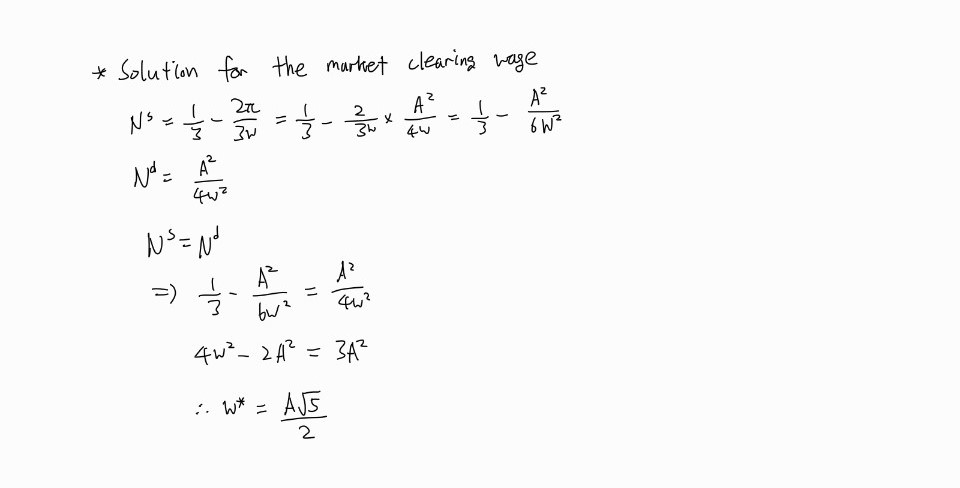 * Solution for the market clearing wage
N^s = 1/3 - 2π/3w = 1/3 - 2/3w × A²/4w = 1/3 - A²/6W²
N^d = A²/4w²
N^s = N^d
=> 1/3 - A²/6w² = A²/4w²
4w² - 2A² = 3A²
∴ w* = A√5/2